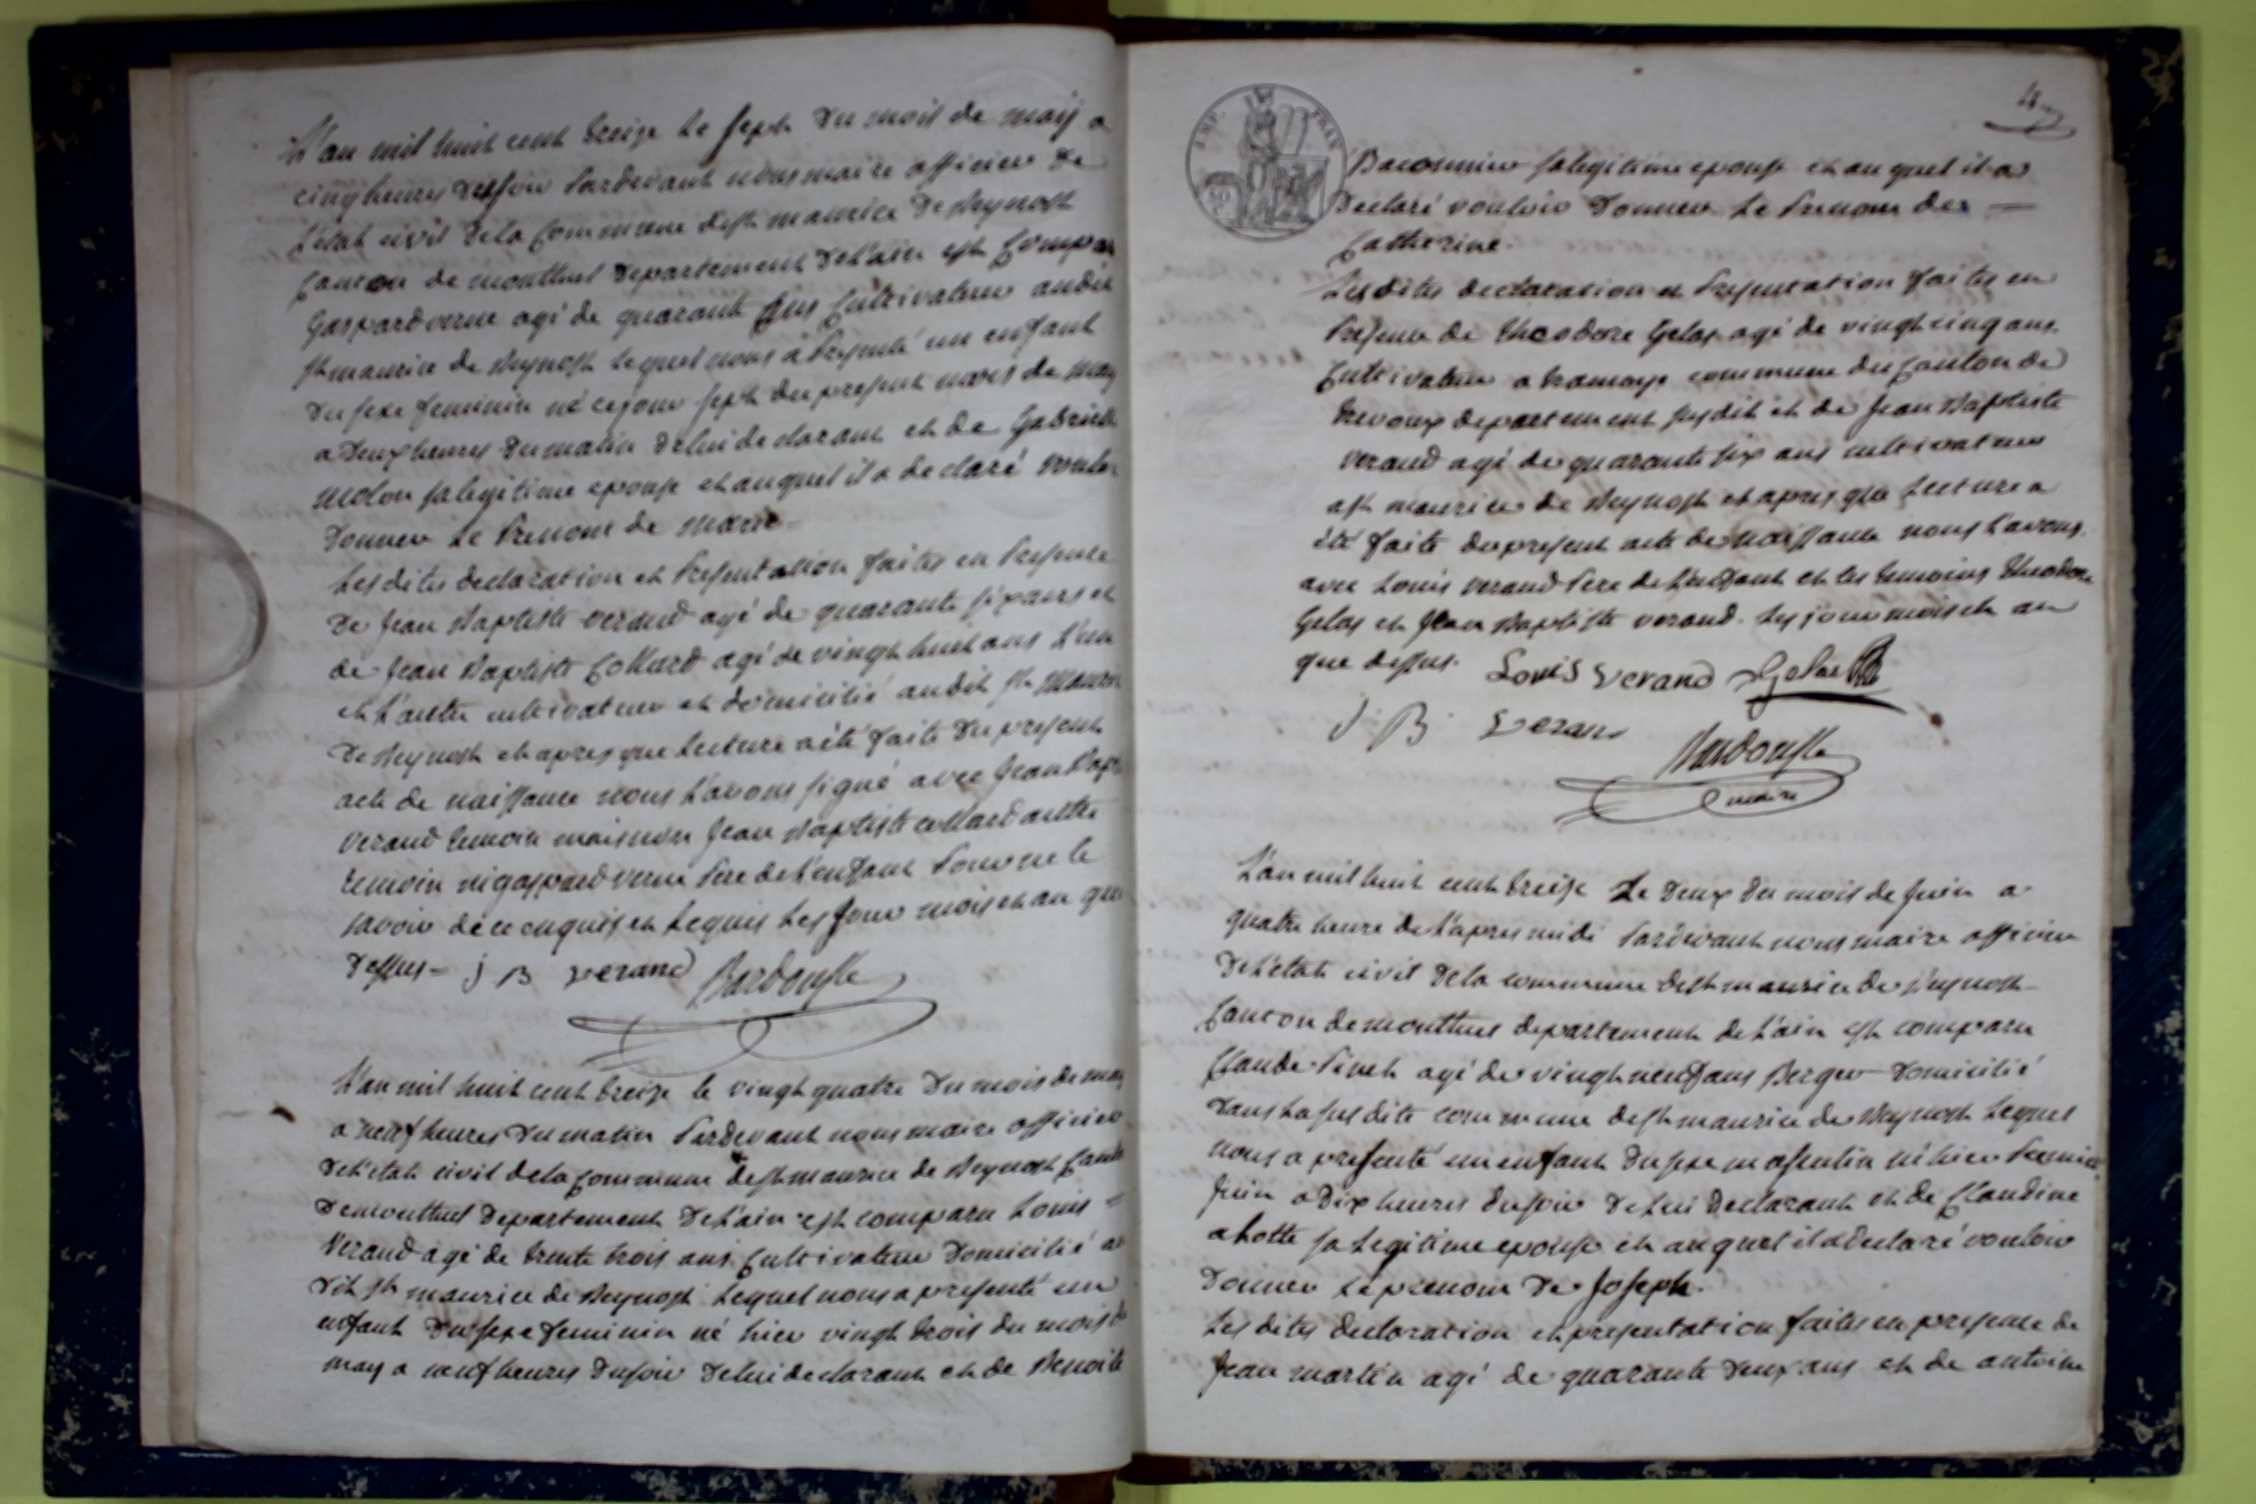 L'an mil huit cent treize le sept du mois de may a
cinq heures du soir Pardevant nous maire officier de
L'etat civil de la Commune de st maurice de Beynost
Canton de montluel departement de L'ain est Comparu
Gaspard verne agé de quarante ans Cultivateur audit
st maurice de Beynost lequel nous à Presenté un enfant
du sexe feminin né ce jour sept du present mois de may
a deux heures du matin de lui declarant et de Gabrielle
molon sa legitime epouse et auquel il a declaré vouloir
donner Le Prenom de marie
Les dites declaration et Presentation faites en Presence
de Jean Baptiste verand agé de quarante six ans et
de Jean Baptiste Collard agé de vingt huit ans L'un
et L'autre cultivateur et domicilié audit st Maurice
de Beynost et apres que Lecture a été faite du present
acte de naissance nous L'avons signé avec Jean Bapt
verand temoin mais non Jean Baptiste collard autre
temoin ni gaspard verne Pere de L'enfant Pour ne le
savoir de ce enquis et requis Les Jour mois et an que
dessus = j B verand Bardousse
L'an mil huit cent treize le vingt quatre du mois de may
a neuf heures du matin Pardevant nous maire officier
de L'etat civil de la Commune de st maurice de Beynost Canton
de montluel Departement de L'ain est comparu Louis =
Verand agé de trente trois ans Cultivateur domicilié au
dit st maurice de Beynost Lequel nous a presenté un
enfant du sexe feminin né hier vingt trois du mois de
may a neuf heures du soir de lui declarant et de Benoite
IMP. FRAN
Baconnier sa legitime epouse et auquel il a
Declaré vouloir Donner Le Prenom de =
Catherine.
Les dites declaration et Presentation faites en
Presence de theodore Gelas agé de vingt cinq ans
Cultivateur a tramoye commune du Canton de
trevoux departement susdit et de Jean Baptiste
verand agé de quarante six ans cultivateur
a st maurice de Beynost et apres que Lecture a
été faite du present acte de naissance nous L'avons
avec Louis verand Pere de L'enfant et les temoins theodore
Gelas et Jean Baptiste verand. Les jour mois et an
que dessus. Louis verand Gelas
J. B. verand
Bardousse
maire
L'an mil huit cent treize Le deux du mois de Juin a
quatre heure de L'apres midi Pardevant nous maire officier
de L'etat civil de la commune de st maurice de Beynost
Canton de montluel departement de L'ain est comparu
Claude Pinet agé de vingt neuf ans Berger Domicilié
dans La susdite commune de st maurice de Beynost Lequel
nous a presenté un enfant du sexe masculin né hier Premier
Juin a dix heures du soir de lui Declarant et de Claudine
a hotte sa Legitime epouse et auquel il a declaré vouloir
Donner Le prenom de Joseph.
Les dites declaration et presentation faites en presence de
Jean martin agé de quarante deux ans et de antoine